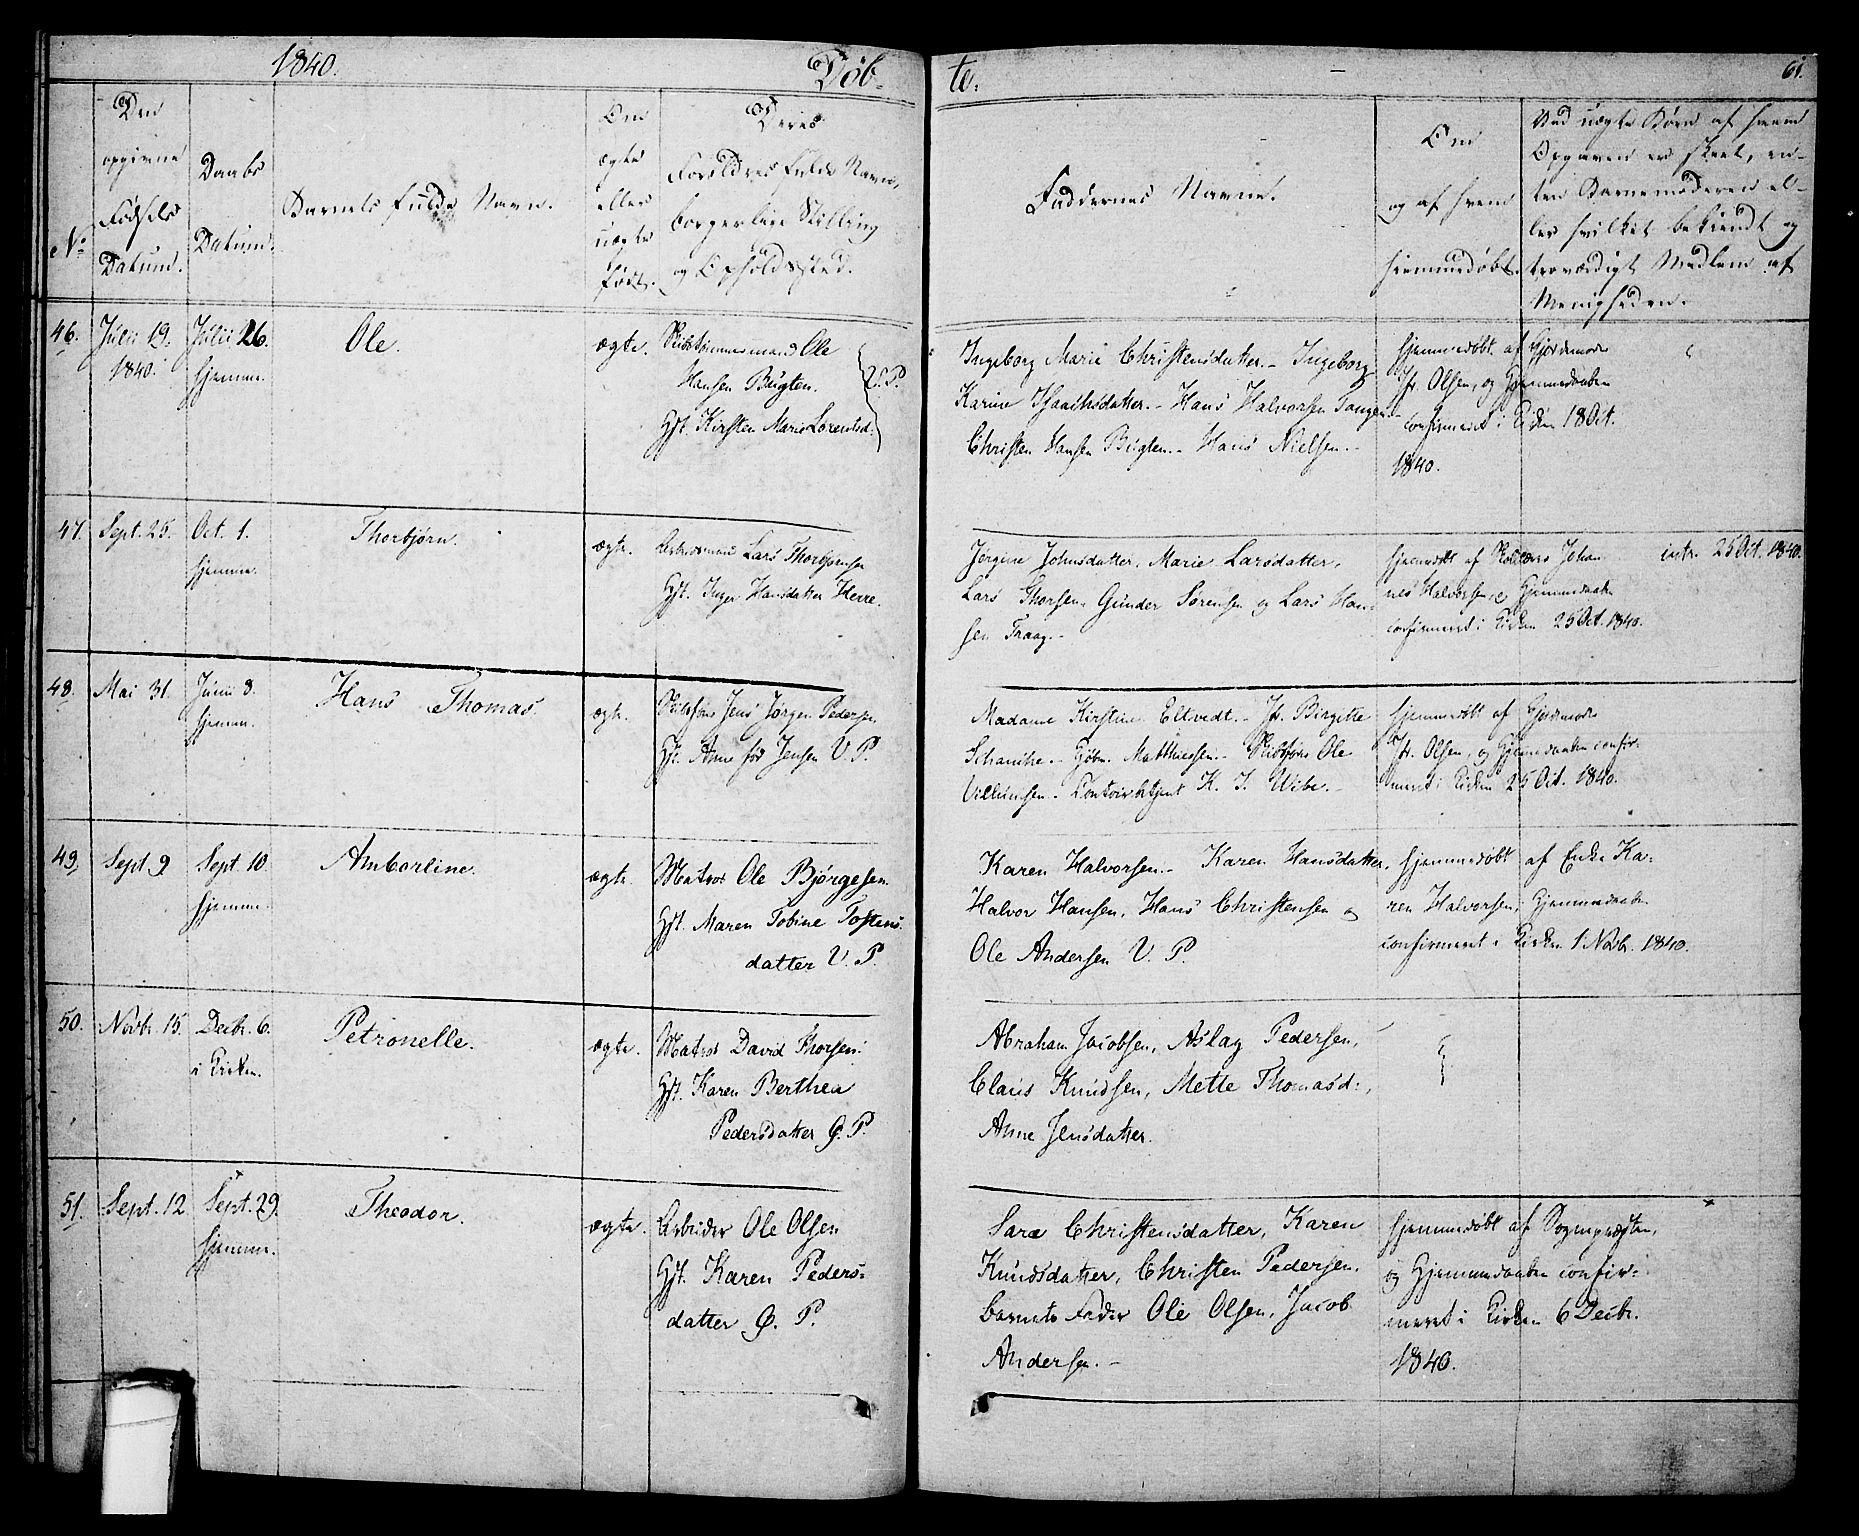 1840.
Døb-
te.
61.
No
Den
opgivne
Fødsels
Datum.
Daabs
Datum.
Barnets fulde Navn.
Om
ægte
eller
uægte
født.
Deres
Forældres fulde Navn,
borgerlige Stilling
og Opholdssted.
Faddernes Navne.
Om
og af hvem
hjemmedøbt.
Ved uægte Børn af hvem
Opgaven er skeet, en-
ten Barnemoderen el-
ler hvilket bekiendt og
troværdigt Medlem af
Menigheden.
46.
Julii 19.
1840.
Julii 26.
hjemme.
Ole.
ægte.
Skibstømmermand Ole
Hansen Bugten.
Hst. Kirsten Marie Lorentsd.
V. P.
Ingeborg Marie Christensdatter.- Ingeborg
Karine Isaachsdatter.- Hans Halvorsen Tangen.-
Christen Hansen Bugten.- Hans Nielsen.-
hjemmedøbt af Gjordemoder
Jfr. Olsen, og Hjemmedaaben
confirmeret i Kirken 18 Oct.
1840.
47.
Sept. 25.
Oct. 1.
hjemme.
Thorbjørn.
ægte.
Lars Thorbjørnsen
Hst. Inger Hansdatter Herre.
Jørgine Johnsdatter, Marie Larsdatter,
Lars Thorsen, Gunder Sørensen og Lars Han-
sen Traag.-
hjemmedøbt af Skolelærer Johan
nes Halvorsen, og Hjemmedaaben
confirmeret i Kirken 25 Oct. 1840.
intr. 25 Oct. 1840.
48.
Mai 31.
Junii 8.
hjemme.
Hans Thomas.
ægte.
Skibsfører Jens Jørgen Pedersen
Hst. Anne fød Jensen V. P.
Madame Kirstine Eltvedt.- Jfr. Birgitte
Schanche.- Matthiesen.- Skibsfører Ole
Villumsen.- Contoirbetjent K. J. Wibe.-
hjemmedøbt af Gjordemoder
Jfr. Olsen, og Hjemmedaaben confir-
meret i Kirken 25 Oct. 1840.
49.
Sept. 9
Sept. 10.
hjemme.
Amborline.
ægte.
Matros Ole Bjørgesen.
Hst. Maren Tobine Tostens-
datter V. P.
Karen Halvorsen.- Karen Hansdatter,
Halvor Hansen, Hans Christensen og
Ole Andersen V. P.
hjemmedøbt af Enke Ka-
ren Halvorsen, Hjemmedaaben
confirmeret i Kirken 1 Novb. 1840.
50.
Novbr. 15.
Decbr. 6.
i Kirken.
Petronelle.
ægte.
Matros David Thorsen.
Hst. Karen Berthea
Pedersdatter Ø. P.
Abraham Jacobsen, Aslag Pedersen,
Claus Knudsen, Mette Thomasd:,
Anne Jensdatter.
51.
Sept. 12
Sept. 29.
hjemme.
Theodor.
ægte.
Arbeider Ole Olsen
Hst. Karen Peders-
datter Ø. P.
Sara Christensdatter, Karen
Knudsdatter, Christen Pedersen,
barnets Fader Ole Olsen, Jacob
Andersen.-
hjemmedøbt af Sognepræsten,
og Hjemmedaaben confir-
meret i Kirken 6 Decbr.
1840.